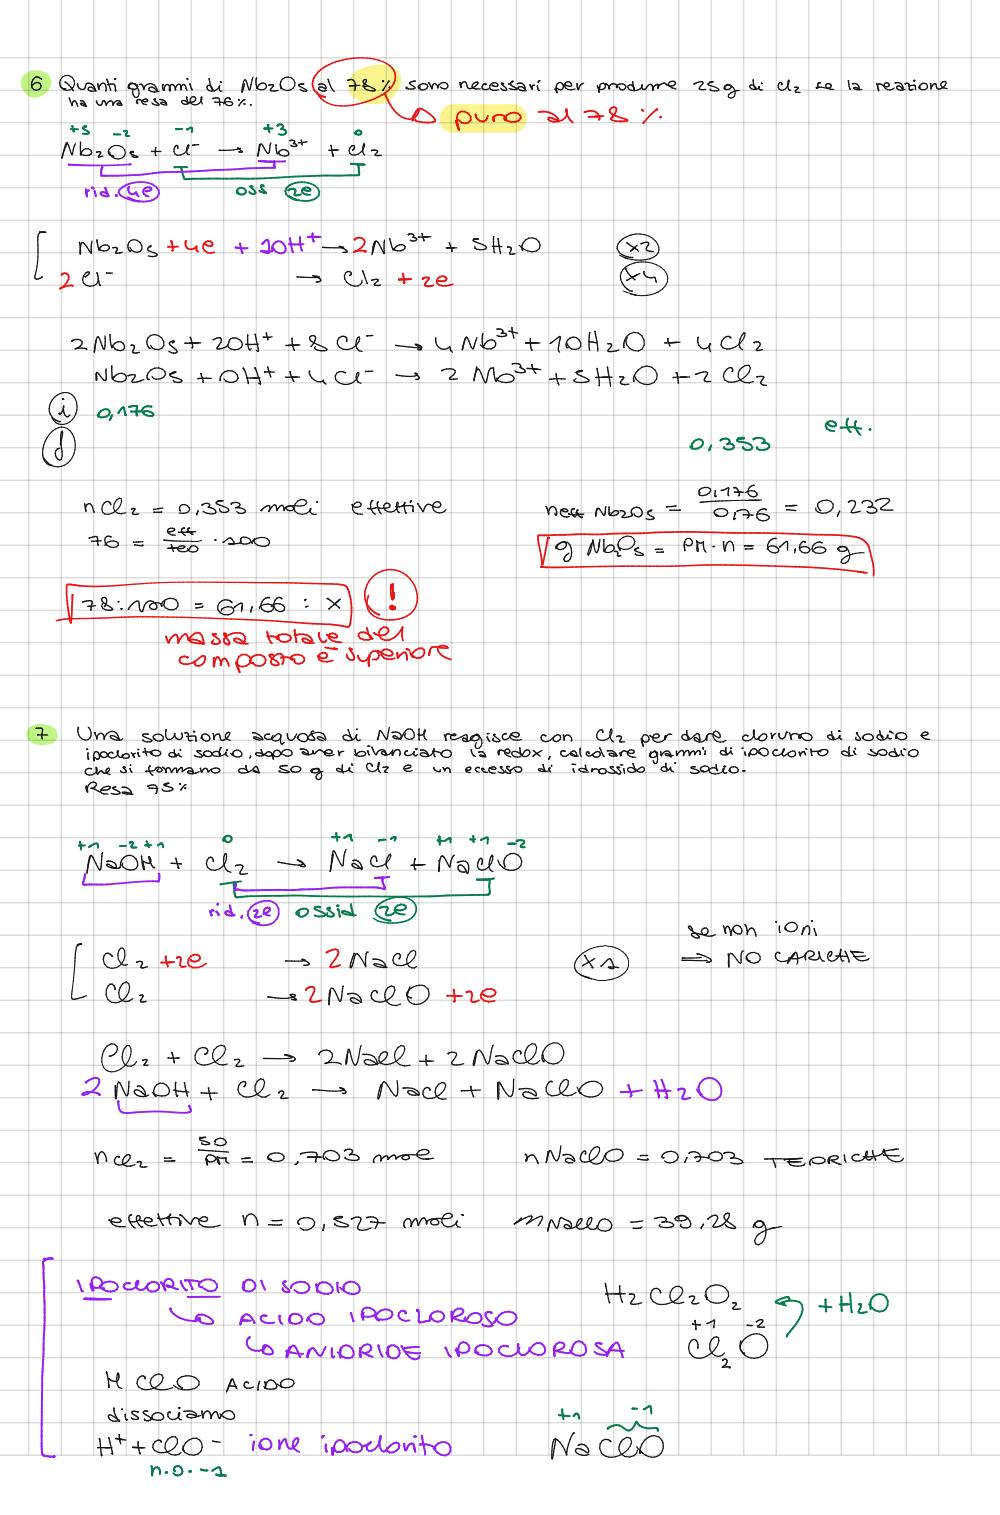 6 Quanti grammi di Nb2O5 al 78% sono necessari per produrre 25g di Cl2 se la reazione
ha una resa del 76%.
puro al 78%.
+5 -2 -1 +3 0
Nb2O5 + Cl- → Nb3+ + Cl2
rid. 4e oss 2e
Nb2O5 +4e + 10H+ → 2Nb3+ + 5H2O x2
2Cl- → Cl2 + 2e x4
2Nb2O5 + 20H+ + 8Cl- → 4Nb3+ + 10H2O + 4Cl2
Nb2O5 + OH+ + 4Cl- → 2Nb3+ + 5H2O + 2Cl2
i 0,176
eff.
d 0,353
nCl2 = 0,353 moli effettive
neff Nb2O5 = 0,176/0,76 = 0,232
76 = eff/teo · 100
g Nb2O5 = PM·n = 61,66 g
78:100 = 61,66 : x !
massa totale del
composto è superiore
7 Una soluzione acquosa di NaOH reagisce con Cl2 per dare cloruro di sodio e
ipoclorito di sodio, dopo aver bilanciato la redox, calcolare grammi di ipoclorito di sodio
che si formano da 50 g di Cl2 e un eccesso di idrossido di sodio.
Resa 75%
+1 -2 +1 0 +1 -1 +1 +1 -2
NaOH + Cl2 → NaCl + NaClO
rid. 2e ossid 2e
se non ioni
⇒ NO CARICHE
Cl2 +2e → 2NaCl x1
Cl2 → 2NaClO +2e
Cl2 + Cl2 → 2NaCl + 2NaClO
2 NaOH + Cl2 → NaCl + NaClO + H2O
nCl2 = 50/PM = 0,703 mol nNaClO = 0,703 TEORICHE
effettive n = 0,527 moli mNaClO = 39,28 g
IPOCLORITO DI SODIO
↳ ACIDO IPOCLOROSO
↳ ANIDRIDE IPOCLOROSA
H2Cl2O2
+H2O
+1 -2
Cl2O
HClO ACIDO
dissociamo
H+ + ClO- ione ipoclorito
n.o. -1
+1 -1
NaClO